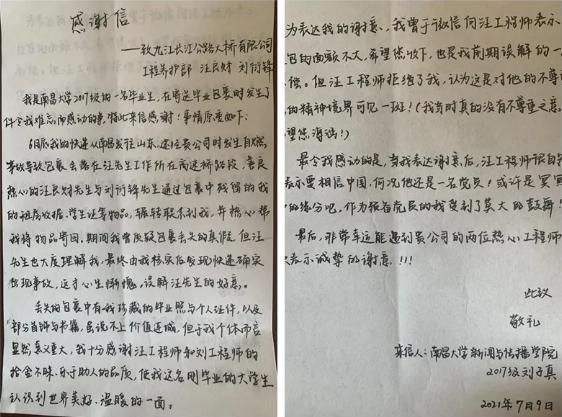 感谢信
——致九江长江公路大桥有限公司
工程养护部 汪良财 刘衍锋
我是南昌大学2017级的一名毕业生，在寄送毕业包裹时发生了
件令我难忘而感动的事，特此来信感谢！事情原委如下：
6月底我的快递从南昌发往山东，途径贵公司时发生自燃，
善良
热心的汪良财先生与刘衍锋先生通过包裹中残留的我
的租房收据、学生证等物品，辗转联系到我，并热心帮
我将物品寄回，期间我曾质疑包裹丢失的真假，但汪
先生也大度理解我，最终由我核实后发现快递确实
出现事故，这才心生惭愧，误解汪先生的好意。
丢失的包裹中有我珍藏的毕业照与个人证件，以及
部分首饰与书籍，虽说不上价值连城，但于我个体而言
显然意义重大，我十分感谢汪工程师和刘工程师的
拾金不昧、乐于助人的品质，使我这名刚毕业的大学生
认识到世界美好、温暖的一面。
为表达我的谢意，我曾于微信向汪工程师表示
包的面额不大，希望您收下，也是我前期误解的一
偿。但汪工程师拒绝了我，认为这是对他的不尊
的精神境界可见一斑！（我当时真的没有不尊重之意，
望您海涵！）
最令我感动的是，当我表达谢意后，汪工程师很自
表示要相信中国，何况他还是一名党员！或许是冥冥
的缘分吧，作为预备党员的我受到了莫大的鼓舞！
最后，非常幸运能遇到贵公司的两位热心工程师
表示诚挚的谢意！！！
此致
敬礼
来信人：南昌大学新闻与传播学院
2017级刘子真
2021年7月9日